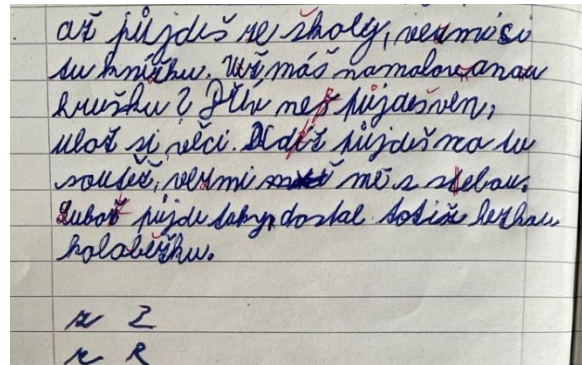 až půjdeš ze školy, vezmi si
tu knížku. Už máš namalovanou
hrušku? Dřív než půjdeš ven,
ulož si věci. Až půjdeš na tu
soutěž, vezmi mě s sebou.
Luboš půjde taky, dostal totiž hezkou
koloběžku.
z Z
r R